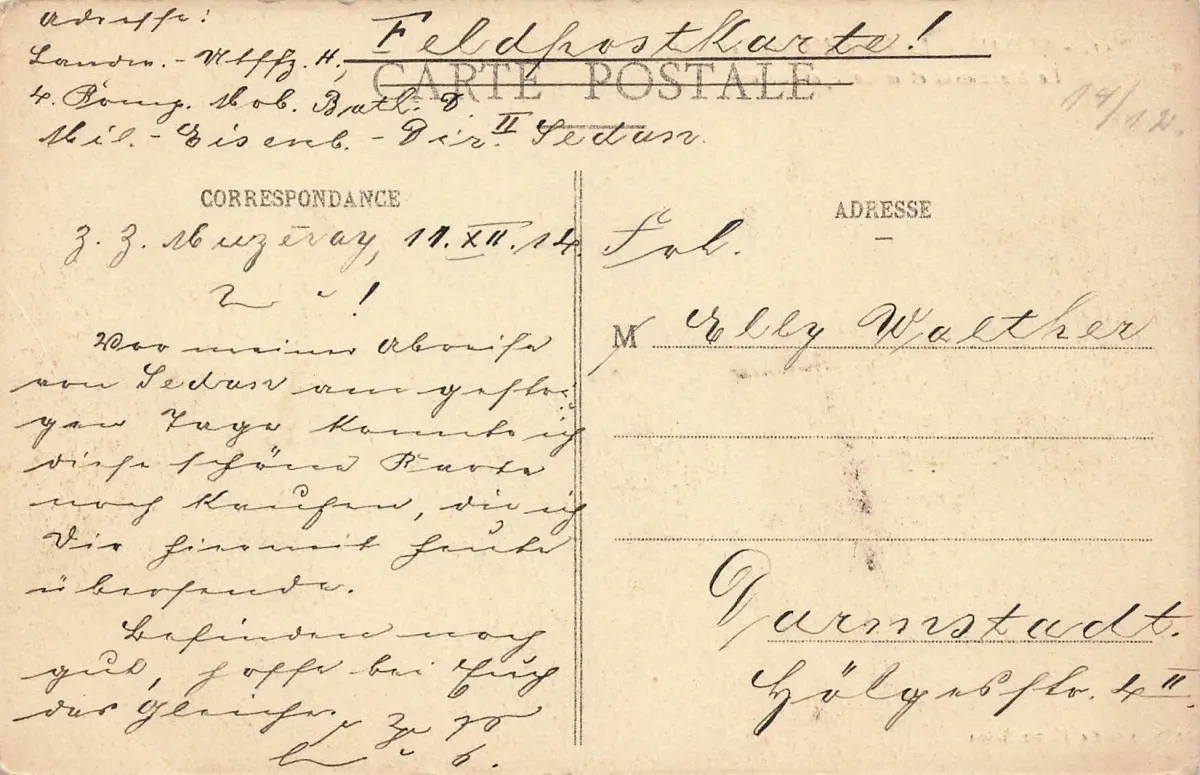 Adresse:
Feldpostkarte!
Landw.-Utffz. H.,
CARTE POSTALE
4. Komp. Mob. Batl. D.
14/12.
Mil.-Eisenb.-Dir. II Sedan.
CORRESPONDANCE
z. Z. Muzeray, 11.XII.14.
!
Vor meiner Abreise
von Sedan am gestri-
gen Tage konnte ich
diese schöne Karte
noch kaufen, die ich
Dir hiermit heute
übersende.
Befinden noch
gut, hoffe bei Euch
das Gleiche.
ADRESSE
Frl.
M Elly Walther
Darmstadt.
Hölgesstr. 4 II.